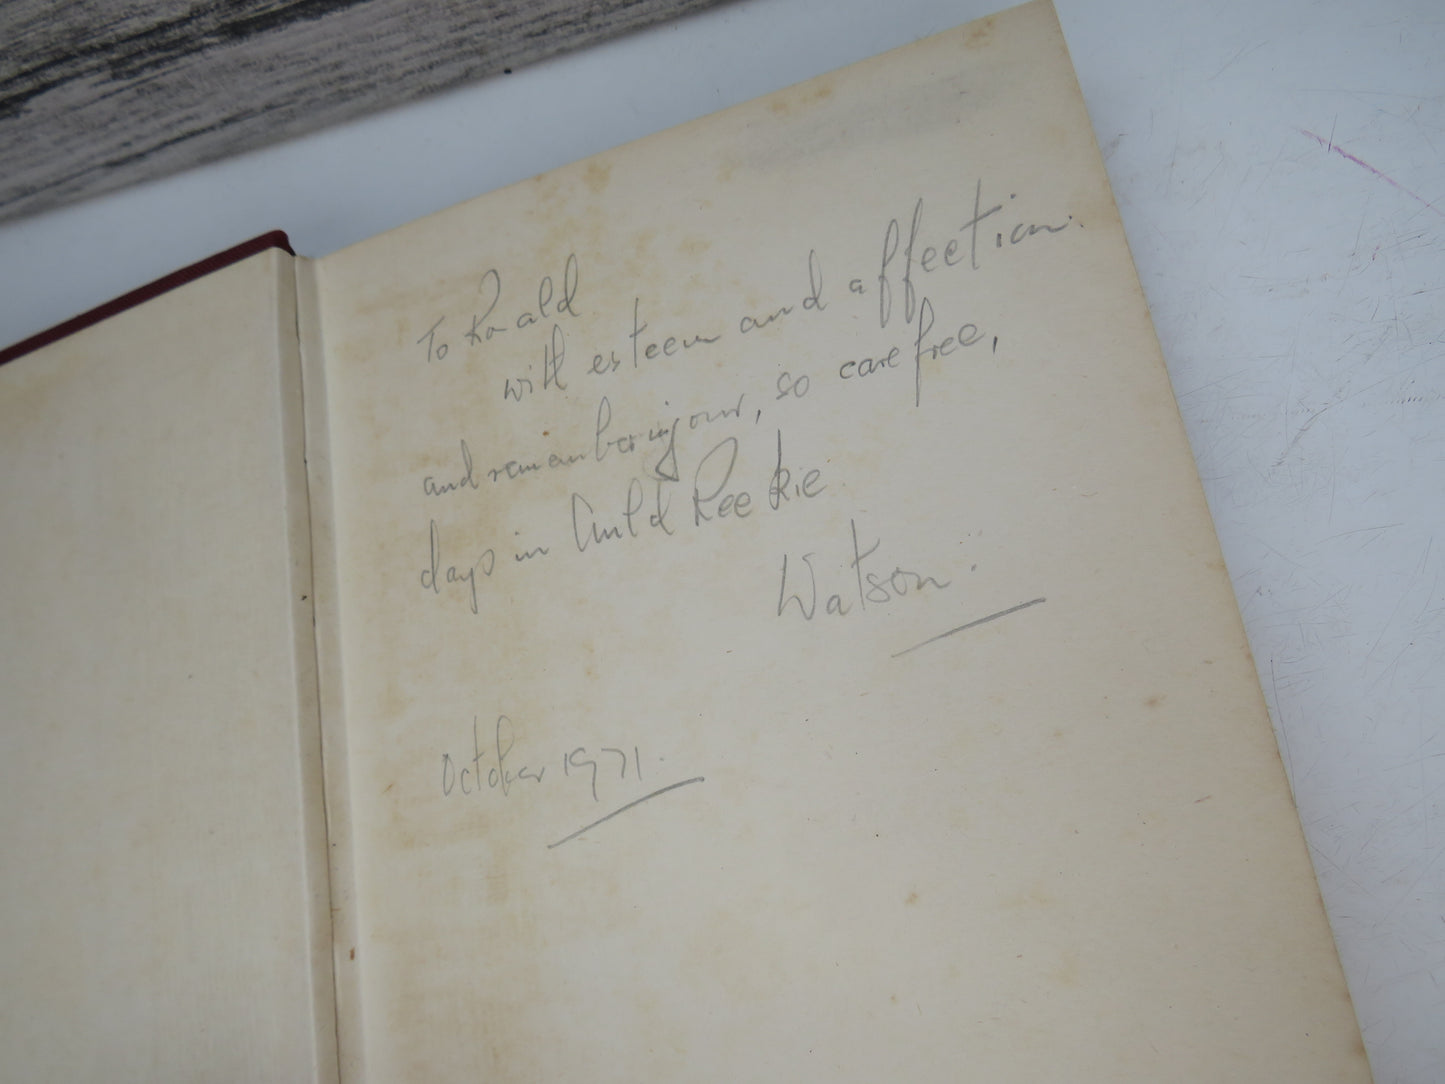 To Ronald
with esteem and affection.
and remembering our, so carefree,
days in Auld Reekie
Watson.
October 1971.